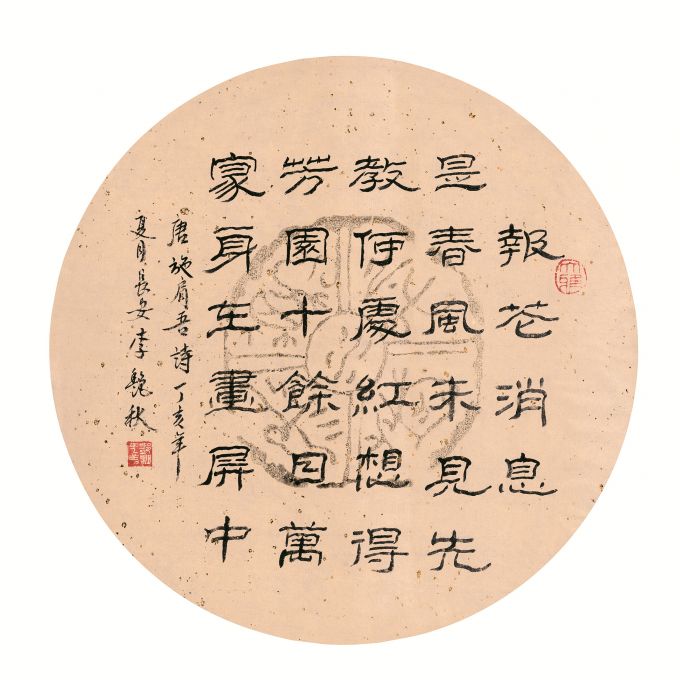 報花消息
是春風未見先
教何處紅想得
芳園十餘日萬
家身在畫屏中
唐施肩吾詩丁亥年
夏月長安李秋